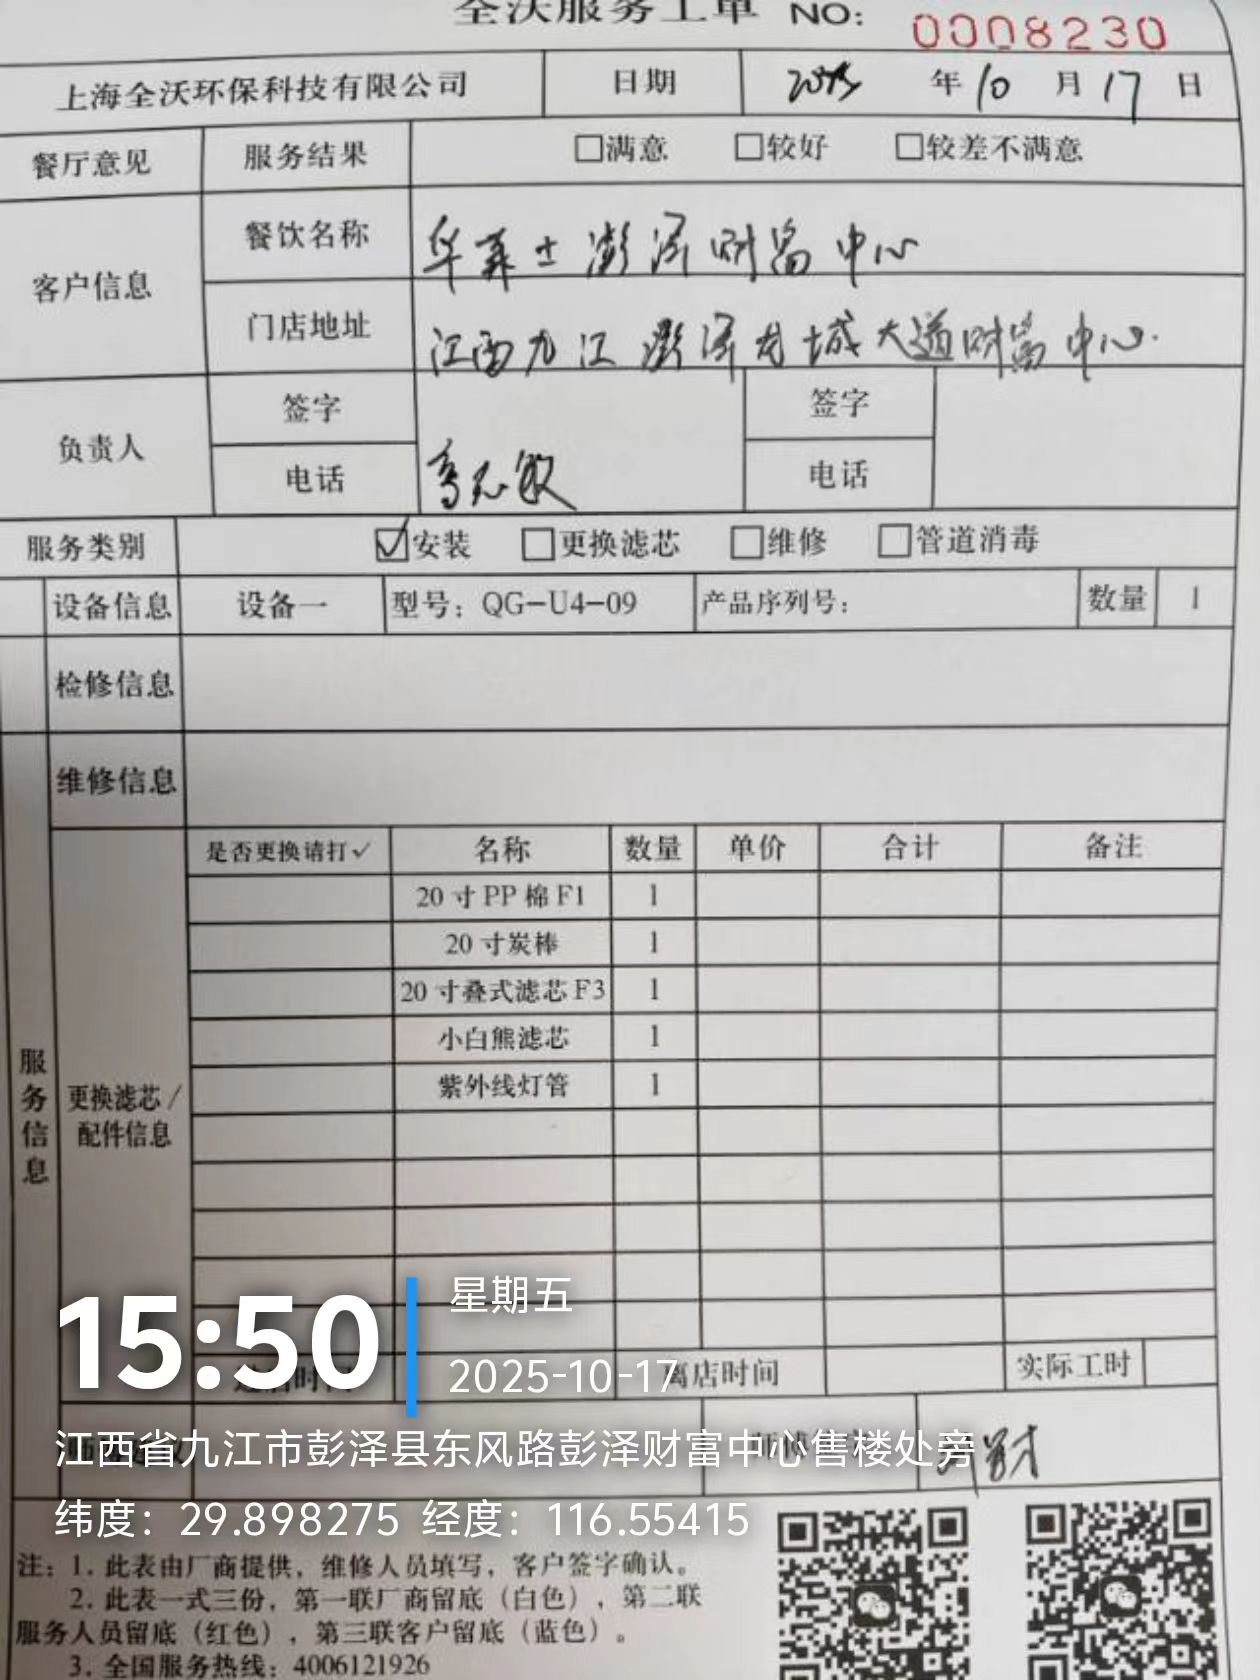 全沃服务工单 NO: 0008230
上海全沃环保科技有限公司 日期 2025 年 10 月 17 日
餐厅意见 服务结果 □满意 □较好 □较差不满意
客户信息 餐饮名称 华莱士澎泽财富中心
门店地址 江西九江澎泽龙城大道财富中心.
负责人 签字 签字
电话 电话
服务类别 ☑安装 □更换滤芯 □维修 □管道消毒
设备信息 设备一 型号：QG-U4-09 产品序列号： 数量 1
检修信息
维修信息
服务信息
更换滤芯/配件信息
是否更换请打✓ 名称 数量 单价 合计 备注
20寸PP棉F1 1
20寸炭棒 1
20寸叠式滤芯F3 1
小白熊滤芯 1
紫外线灯管 1
15:50 星期五
2025-10-17
离店时间 实际工时
江西省九江市彭泽县东风路彭泽财富中心售楼处旁
纬度：29.898275 经度：116.55415
注：1. 此表由厂商提供，维修人员填写，客户签字确认。
2. 此表一式三份，第一联厂商留底（白色），第二联
服务人员留底（红色），第三联客户留底（蓝色）。
3. 全国服务热线：4006121926